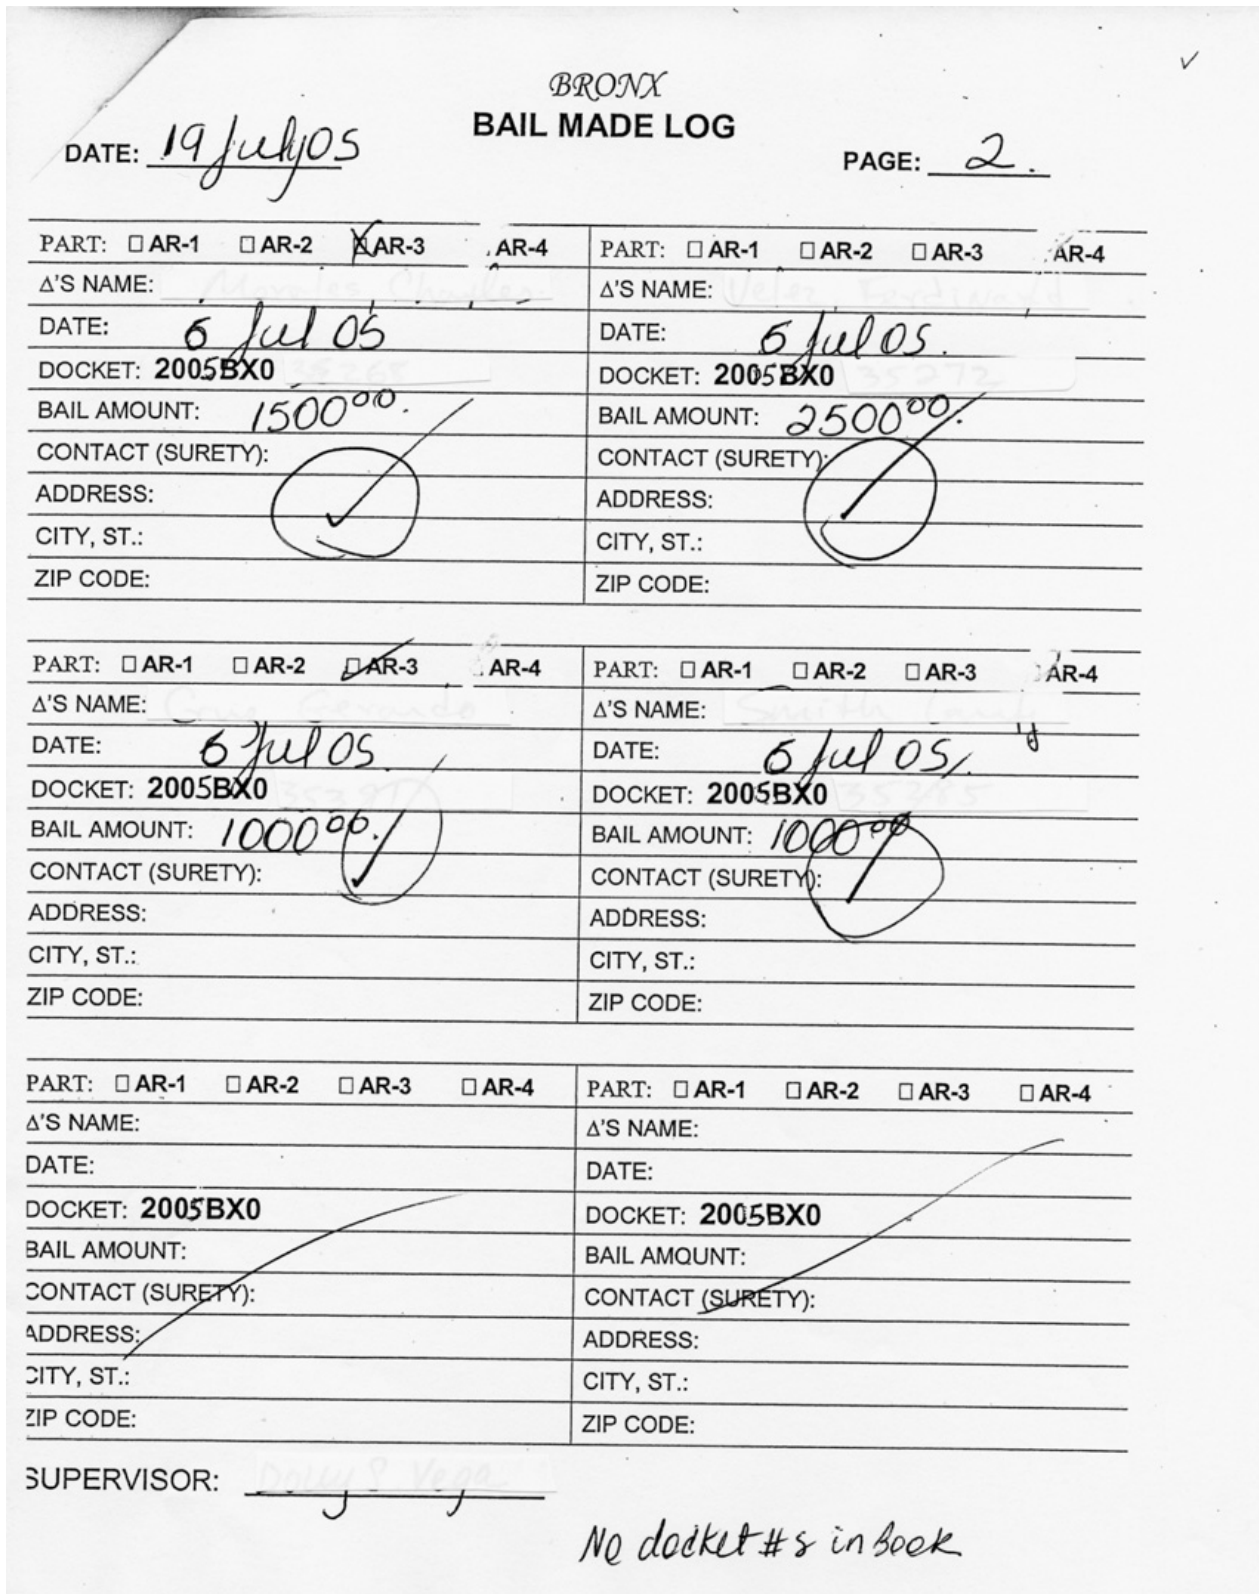 BRONX
BAIL MADE LOG
DATE: 19 July 05
PAGE: 2.
PART: AR-1 AR-2 AR-3 AR-4
Δ'S NAME:
DATE: 6 Jul 05
DOCKET: 2005BX0
BAIL AMOUNT: 1500⁰⁰.
CONTACT (SURETY):
ADDRESS:
CITY, ST.:
ZIP CODE:
PART: AR-1 AR-2 AR-3 AR-4
Δ'S NAME:
DATE: 6 Jul 05.
DOCKET: 2005BX0
BAIL AMOUNT: 2500⁰⁰.
CONTACT (SURETY):
ADDRESS:
CITY, ST.:
ZIP CODE:
PART: AR-1 AR-2 AR-3 AR-4
Δ'S NAME:
DATE: 6 Jul 05.
DOCKET: 2005BX0
BAIL AMOUNT: 1000⁰⁰.
CONTACT (SURETY):
ADDRESS:
CITY, ST.:
ZIP CODE:
PART: AR-1 AR-2 AR-3 AR-4
Δ'S NAME:
DATE: 6 Jul 05.
DOCKET: 2005BX0
BAIL AMOUNT: 1000⁰⁰
CONTACT (SURETY):
ADDRESS:
CITY, ST.:
ZIP CODE:
PART: AR-1 AR-2 AR-3 AR-4
Δ'S NAME:
DATE:
DOCKET: 2005BX0
BAIL AMOUNT:
CONTACT (SURETY):
ADDRESS:
CITY, ST.:
ZIP CODE:
PART: AR-1 AR-2 AR-3 AR-4
Δ'S NAME:
DATE:
DOCKET: 2005BX0
BAIL AMOUNT:
CONTACT (SURETY):
ADDRESS:
CITY, ST.:
ZIP CODE:
SUPERVISOR:
No docket #s in Book